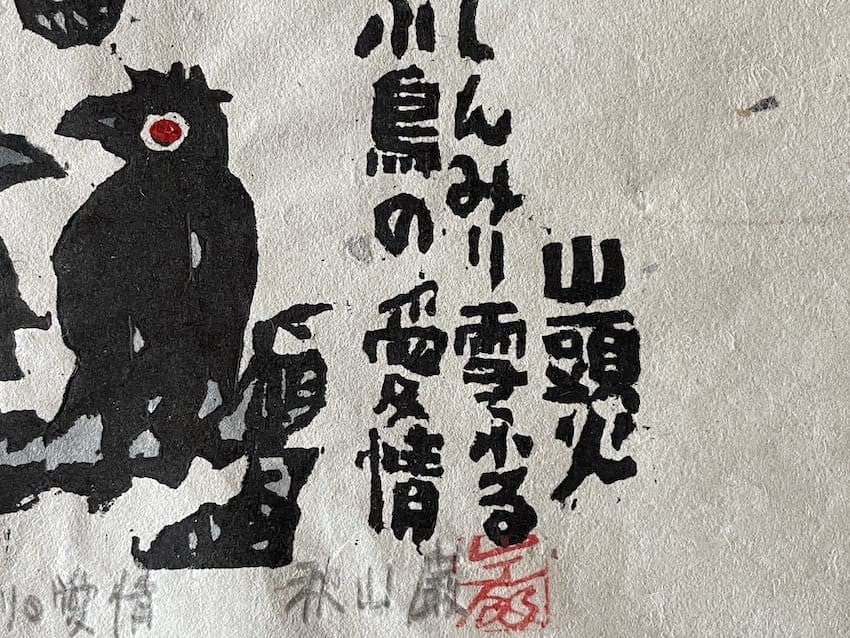 山頭火
しんみり雪ふる
小鳥の愛情
の愛情
秋山巌